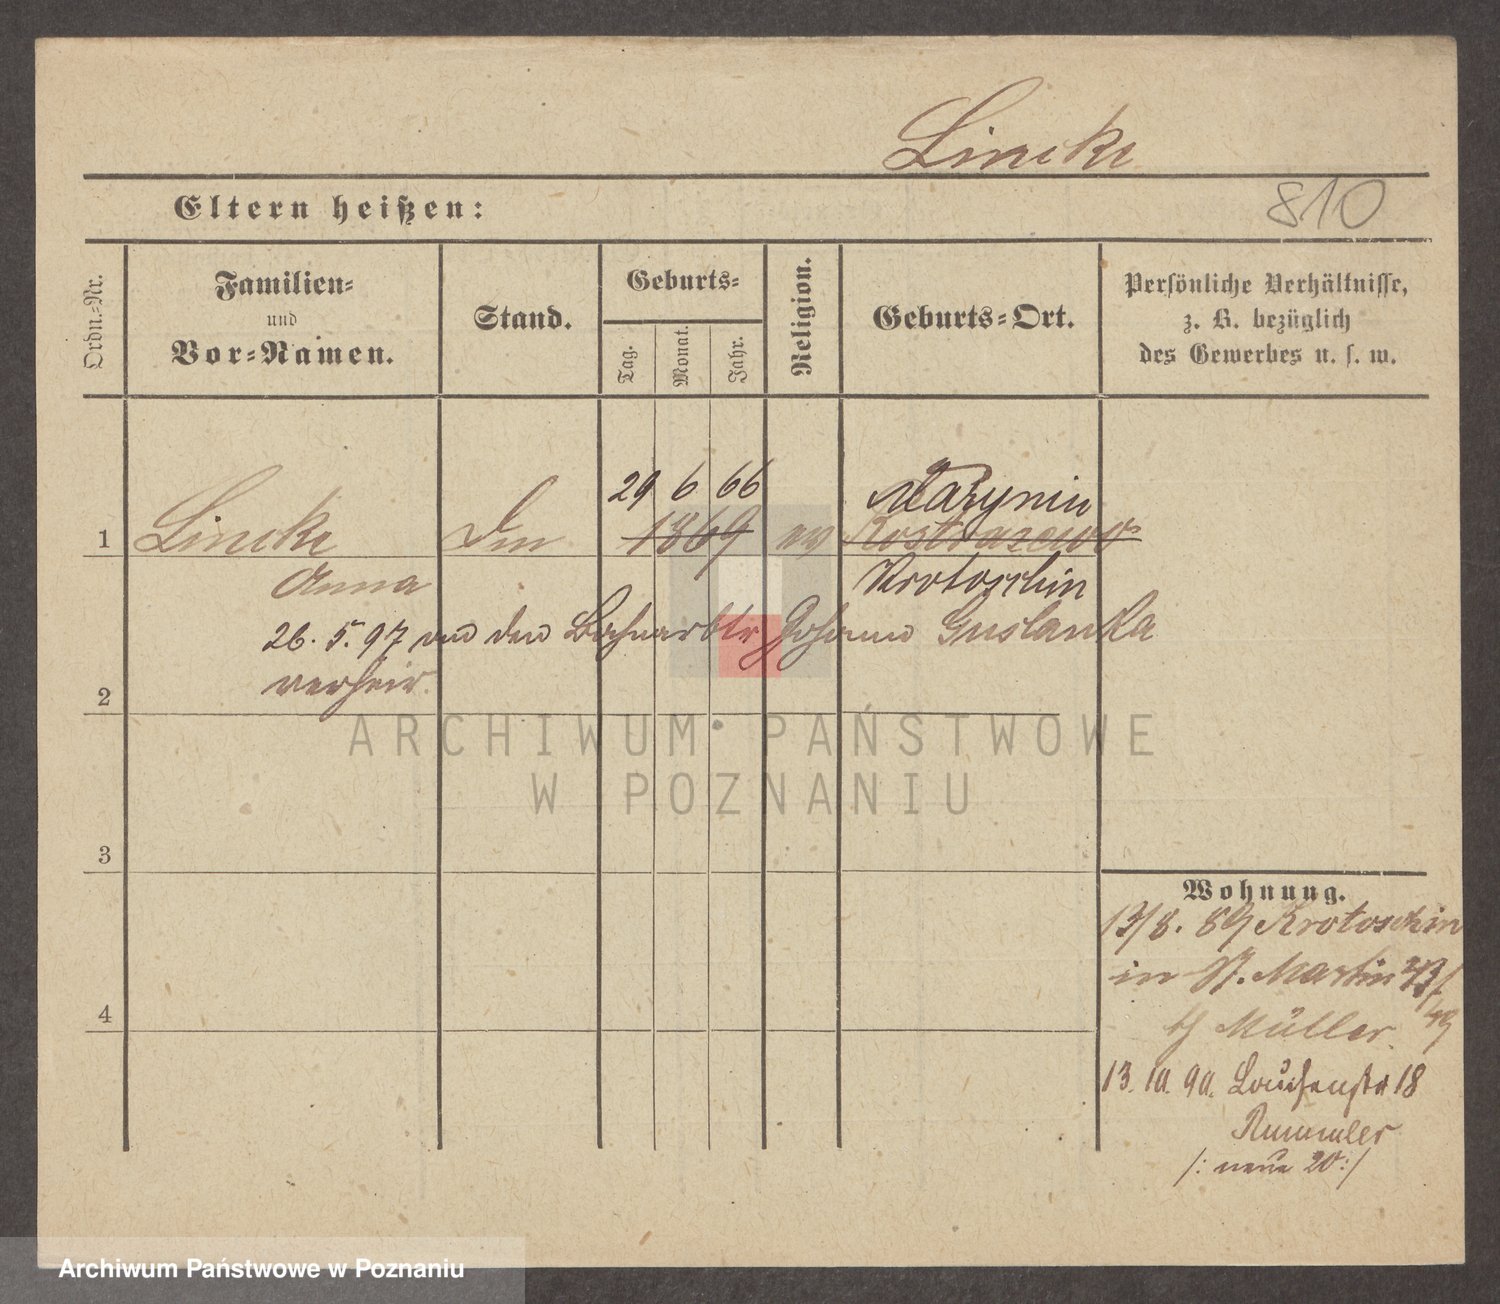 Lincke
Eltern heißen:
810
Ordn.-Nr.
Familien-
und
Vor-Namen.
Stand.
Geburts-
Tag.
Monat.
Jahr.
Religion.
Geburts-Ort.
Persönliche Verhältnisse,
z. B. bezüglich
des Gewerbes u. s. w.
29 6 66
1 Lincke 1869 ev Kostrzewo
Anna Krotoschin
26. 5. 97 an den Bahnarbtr Johann Guslanka
2 verheir.
ARCHIWUM PAŃSTWOWE
W POZNANIU
3
Wohnung.
13/8. 89 Krotoschin
in St. Martin
4
Müller.
13. 10. 90. 18
Rummler
/: neue 20 :/
Archiwum Państwowe w Poznaniu